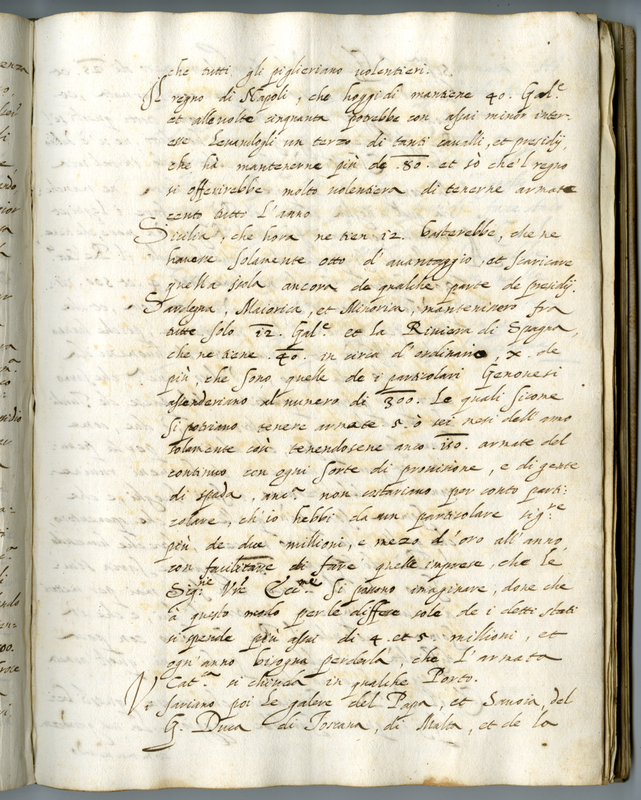 che tutti gli piglieriano uolentieri.
Il regno di Napoli, che hoggi dì mantiene 40. Gal.e
et alle uolte cinquanta potrebbe con assai minor inter-
esse leuandogli un terzo di tanti caualli, et presidij,
che hà mantenerne più de 80. et sò che'l regno
si offerirebbe molto uolentiera di tenerne armate
cento tutto l'anno
Sicilia, che hora ne tien 12. basterebbe, che ne
hauesse solamente otto d'auantaggio, et scaricare
quella isola ancora de qualche parte de presidij
Sardegna, Maiorica, et Minorica, mantenissero fra
tutte solo 12. Gal.e et la Riuiera di Spagna,
che ne tiene 40. in circa d'ordinario, x. de
più, che sono quelle de i particolari Genouesi
assenderiano al numero di 300. Le quali sicome
si potriano tenere armate 5. ò sei mesi dell'anno
solamente così tenendosene anco 150. armate del
continuo con ogni sorte di prouisione, e di gente
di spada, anc.a non costariano per conto parti-
colare, ch'io hebbi da un particolare sig.re
più de due millioni, e mezo d'oro all'anno,
con facilitare di fare quelle imprese, che le
Sig.rie Vr.e Ecc.me si ponno imaginare, doue che
à questo modo per le diffese sole de i detti stati
si spende più assai di 4. et 5. millioni, et
ogn'anno bisogna perderla, che l'armata
Cat.ca si chiuda in qualche Porto.
Vi sariano poi le galere del Papa, et Sauoia, del
G. Duca di Toscana, di Malta, et de la